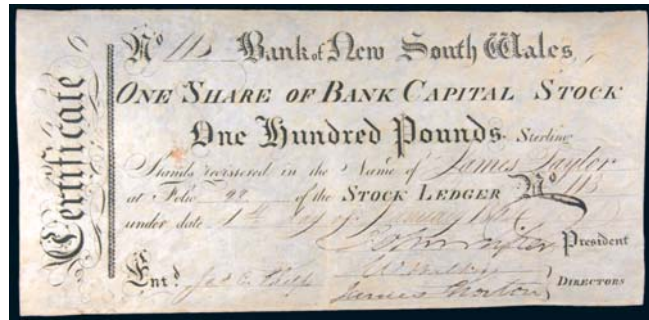 Certificate
No 113 Bank of New South Wales,
ONE SHARE OF BANK CAPITAL STOCK
One Hundred Pounds Sterling
Stands registered in the Name of James Taylor
at Folio 98 of the STOCK LEDGER No 113
under date 1th day of January
President
Entd.
James Norton DIRECTORS